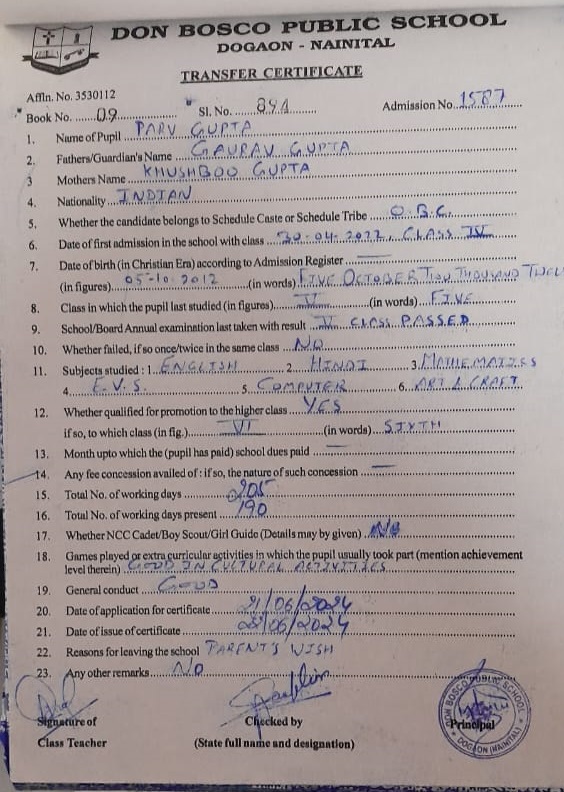 DON BOSCO PUBLIC SCHOOL
DOGAON - NAINITAL
TRANSFER CERTIFICATE
Affln. No. 3530112
Book No. 09 Sl. No. 894 Admission No. 1587
1. Name of Pupil PARV GUPTA
2. Fathers/Guardian's Name GAURAV GUPTA
3 Mothers Name KHUSHBOO GUPTA
4. Nationality INDIAN
5. Whether the candidate belongs to Schedule Caste or Schedule Tribe O.B.C.
6. Date of first admission in the school with class 30-04-2022, CLASS IV
7. Date of birth (in Christian Era) according to Admission Register —
(in figures) 05-10-2012 (in words) FIVE OCTOBER TWO THOUSAND TWEL
8. Class in which the pupil last studied (in figures) V (in words) FIVE
9. School/Board Annual examination last taken with result V CLASS PASSED
10. Whether failed, if so once/twice in the same class NO
11. Subjects studied : 1. ENGLISH 2. HINDI 3. MATHEMATICS
4. E.V.S. 5. COMPUTER 6. ART & CRAFT
12. Whether qualified for promotion to the higher class YES
if so, to which class (in fig.) VI (in words) SIXTH
13. Month upto which the (pupil has paid) school dues paid —
14. Any fee concession availed of : if so, the nature of such concession —
15. Total No. of working days 205
16. Total No. of working days present 190
17. Whether NCC Cadet/Boy Scout/Girl Guide (Details may by given) No
18. Games played or extra curricular activities in which the pupil usually took part (mention achievement
level therein) GOOD IN CULTURAL ACTIVITIES
19. General conduct GOOD
20. Date of application for certificate 21/06/2024
21. Date of issue of certificate 28/06/2024
22. Reasons for leaving the school PARENT'S WISH
23. Any other remarks NO
Signature of Checked by Principal
Class Teacher (State full name and designation)
DON BOSCO PUBLIC SCHOOL
DOGAON (NAINITAL)